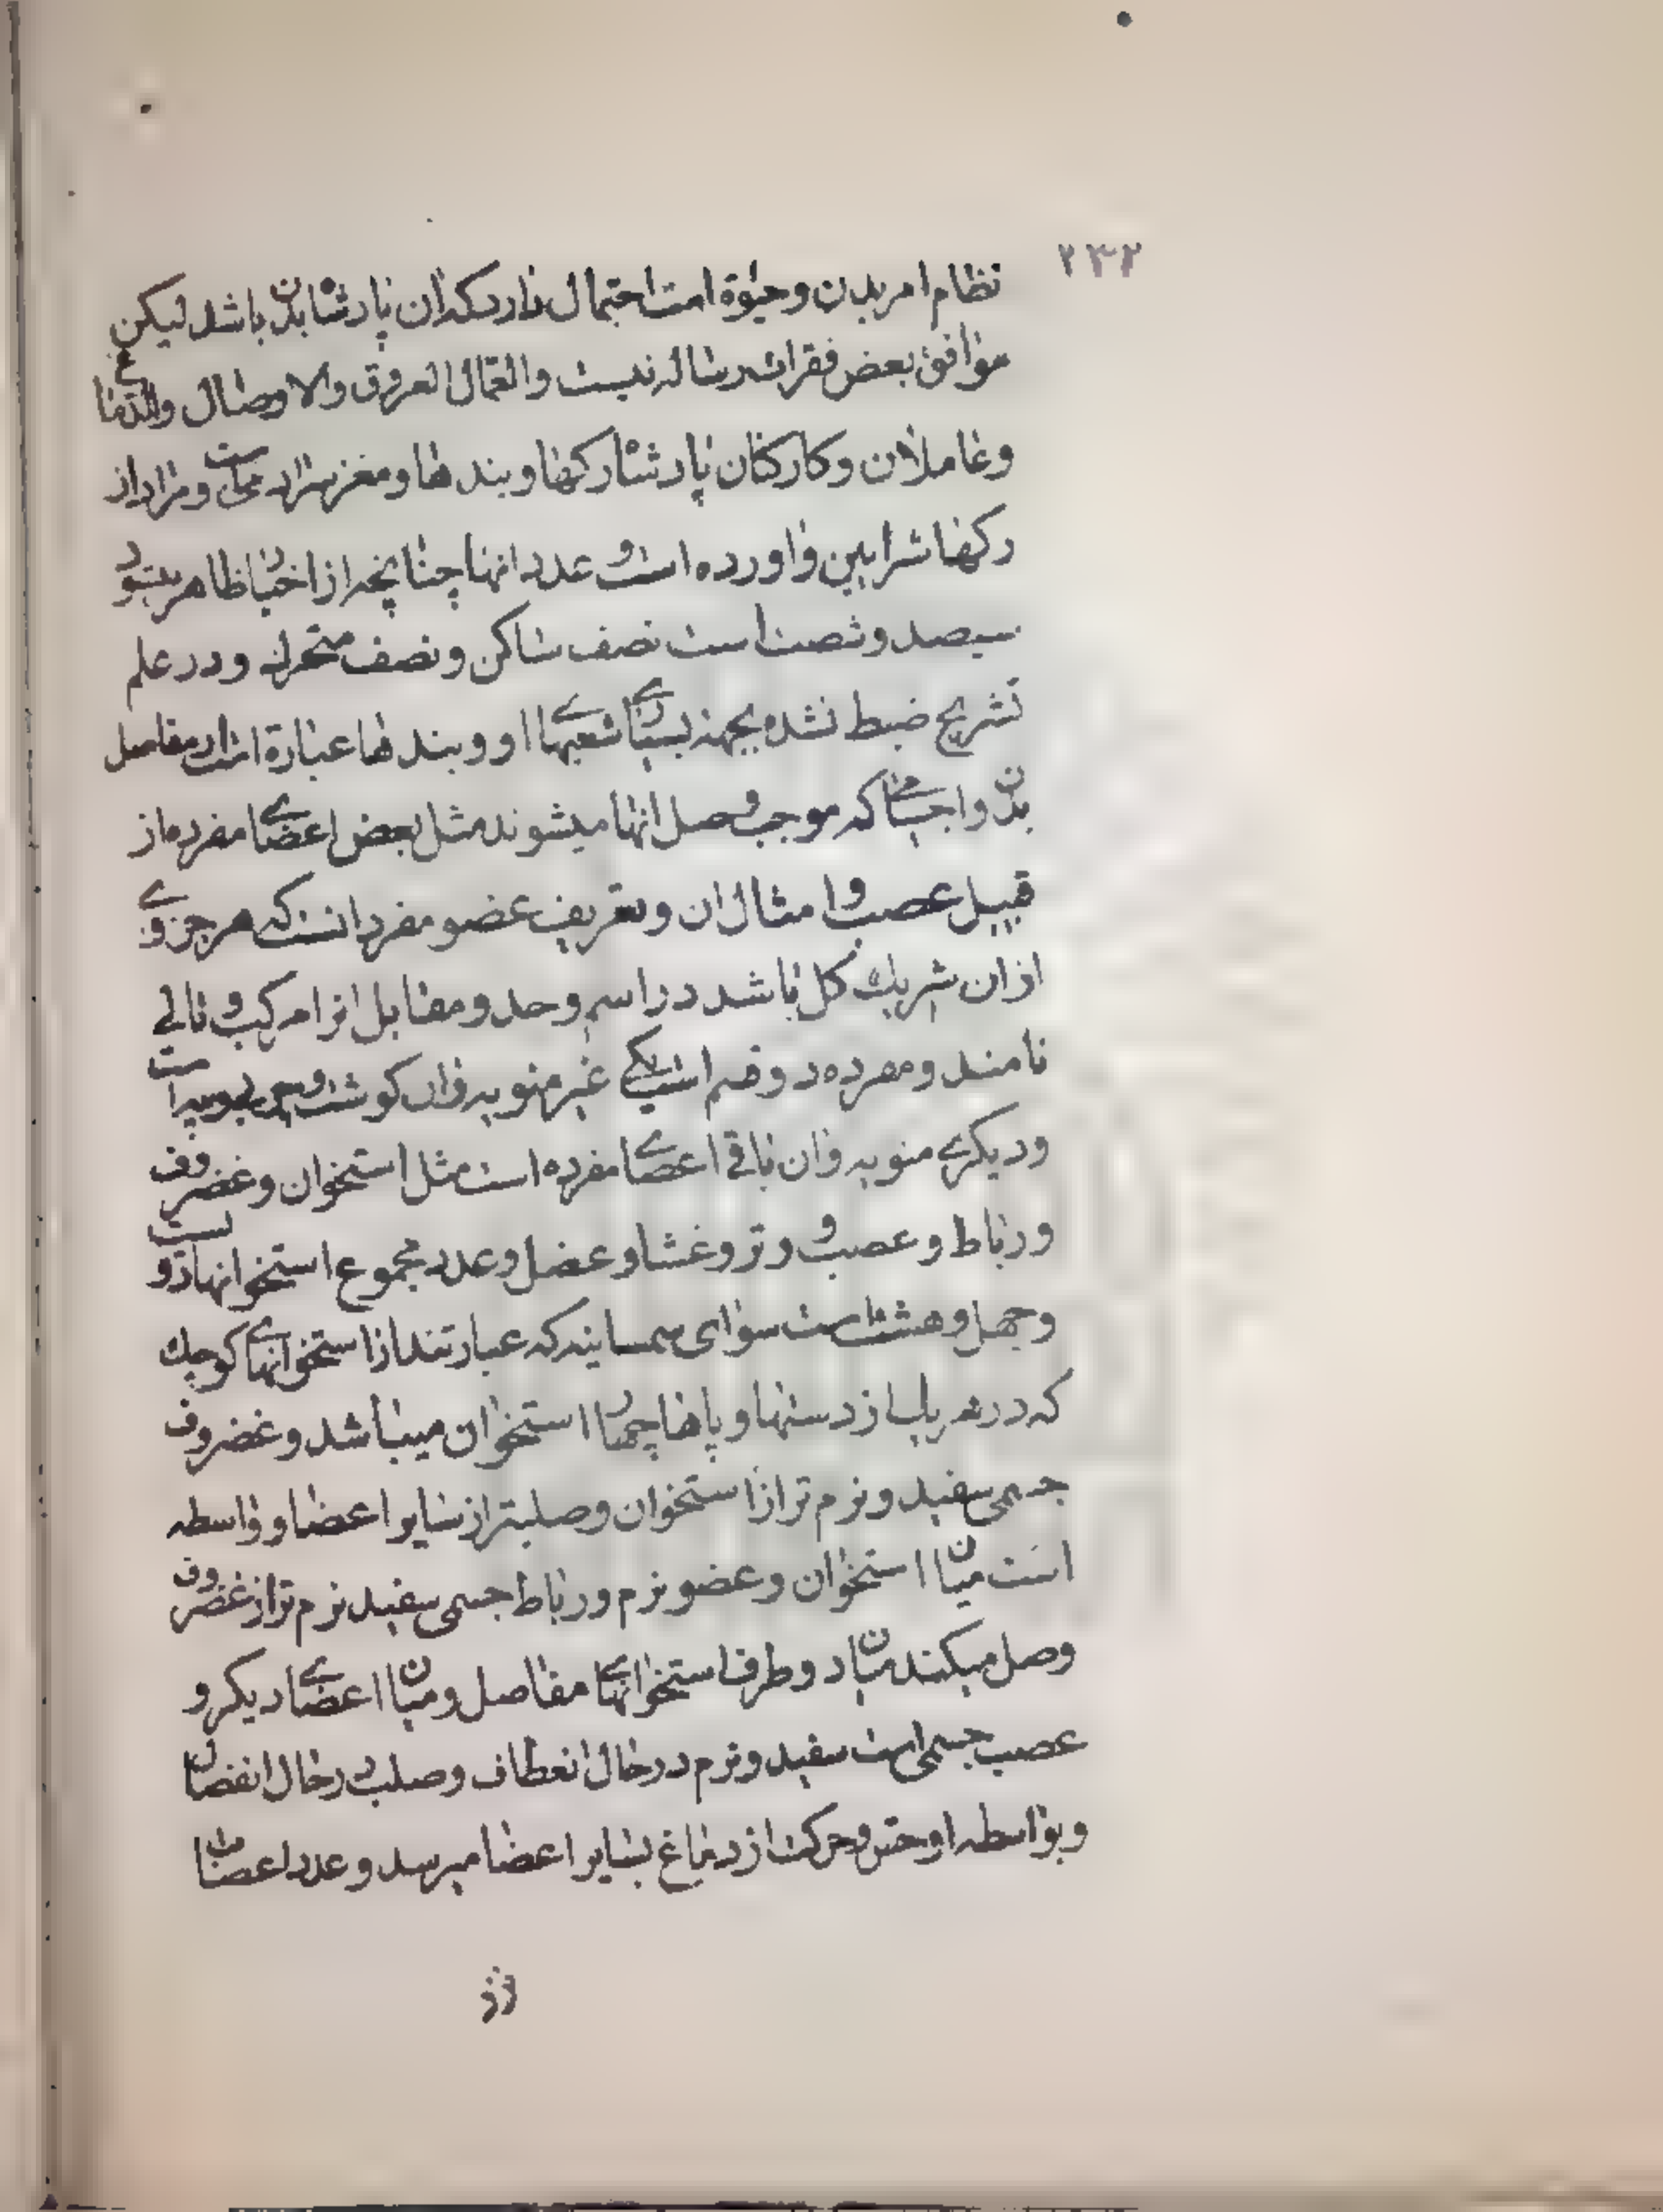 ۲۳۲
نظام امر بدن و حیوة است احتمال دارد که آن پادشاه بدن باشد لیکن
موافق بعض فقرات رساله نیست والعمّال العروق والاوصال والدّماغ
و عاملان و کارکنان پادشاه رکها و بندها و مغز سر
رکها شرایین و اورده است و عدد انها چنانچه از اخبار ظاهر میشود
سیصد و شصت است نصف ساکن و نصف متحرك و در علم
تشریح ضبط نشده بجهة بسیاری شعبهای او و بندها عبارة است از مفاصل
بدن و اجسامی که موجب وصل انها میشوند مثل بعض اعضای مفرده از
قبیل عصب و امثال ان و تعریف عضو مفرد انست که هر جزوی
از ان شریك کل باشد در اسم و حد و مقابل انرا مرکب و الی
نامند و مفرده دو قسم است یکی غیر منویه و ان کوشت و
و دیکری منویه و ان باقی اعضای مفرده است مثل استخوان و غضروف
و رباط و عصب و وتر و غشا و عضل و عدد مجموع استخوانها دویست
و چهل و هشت است سوای سمسانیه که عبارتند از استخوانهای کوچك
که در هر یك از دستها و پاها چهار استخوان میباشد و غضروف
جسمی سفید و نرم تر از استخوان و صلبتر از سایر اعضا و واسطه
است میان استخوان و عضو نرم و رباط جسمی سفید نرم تر از غضروف
وصل میکند میان دو طرف استخوانهای مفاصل و میان اعضای دیکر و
عصب جسمی است سفید و نرم در حال انعطاف و صلب در حال انفصال
و بواسطه او حس و حرکت از دماغ بسایر اعضا میرسد و عدد اعصاب